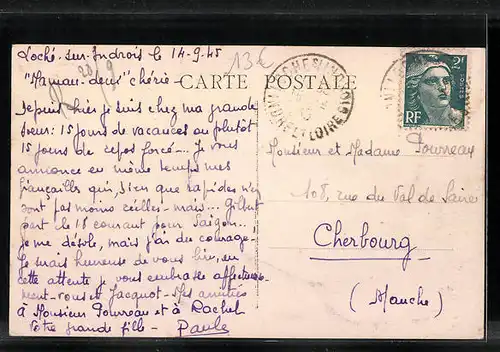 Loché-sur-Indrois le 14-9-45
13€
20/9
"Maman-deux" chérie -
CARTE POSTALE
LOCHE SUR INDROIS
INDRE ET LOIRE
2F
RF
Depuis hier je suis chez ma grande
sœur: 15 jours de vacances ou plutôt
15 jours de repos forcé... Je vous
annonce en même temps mes
fiançailles qui, bien que rapides n'en
sont pas moins réelles - mais... Gilbert
part le 18 courant pour Saïgon...
Je me désole, mais j'ai du courage -
Je serais heureuse de vous lire, en
cette attente je vous embrasse affectueuse-
ment - vous et Jacquot - Mes amitiés
à Monsieur Pourveau et à Rachel
Votre grande fille - Paule
Monsieur et Madame Pourveau
108, rue du Val de Saire
Cherbourg
(Manche)